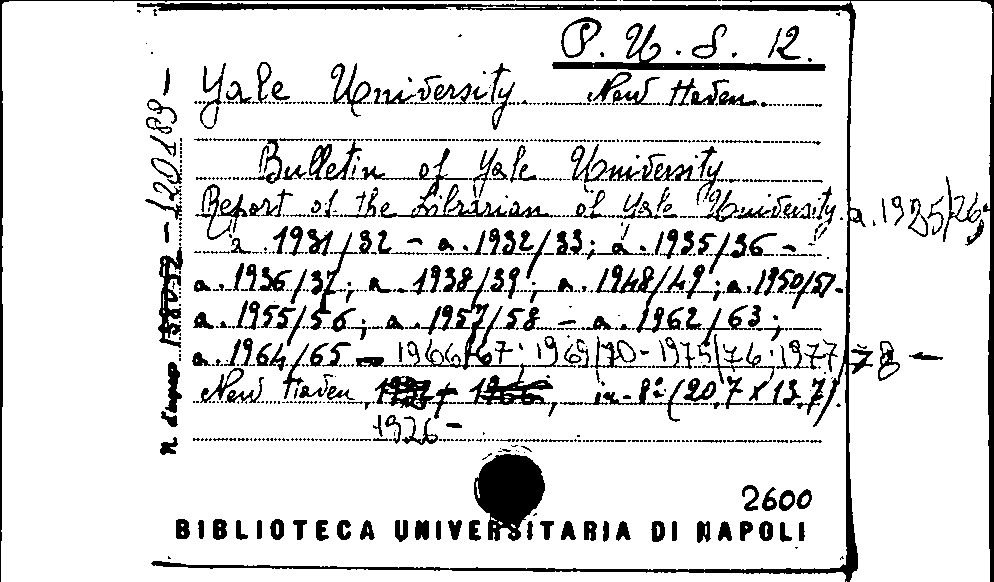 P. U. S. 12.
Yale University. New Haven.
Bulletin of Yale University
Report of the Librarian of Yale University. a. 1925/26;
a. 1931/32 - a. 1932/33; a. 1935/36 -
a. 1936/37; a. 1938/39; a. 1948/49; a. 1950/51-
a. 1955/56; a. 1957/58 - a. 1962/63;
a. 1964/65 - 1966/67; 1969/70 - 1975/76; 1977/78 -
New Haven, in-8º (20,7 x 13,7).
1926 -
n. d'ingresso 138052 - 120189 -
2600
BIBLIOTECA UNIVERSITARIA DI NAPOLI